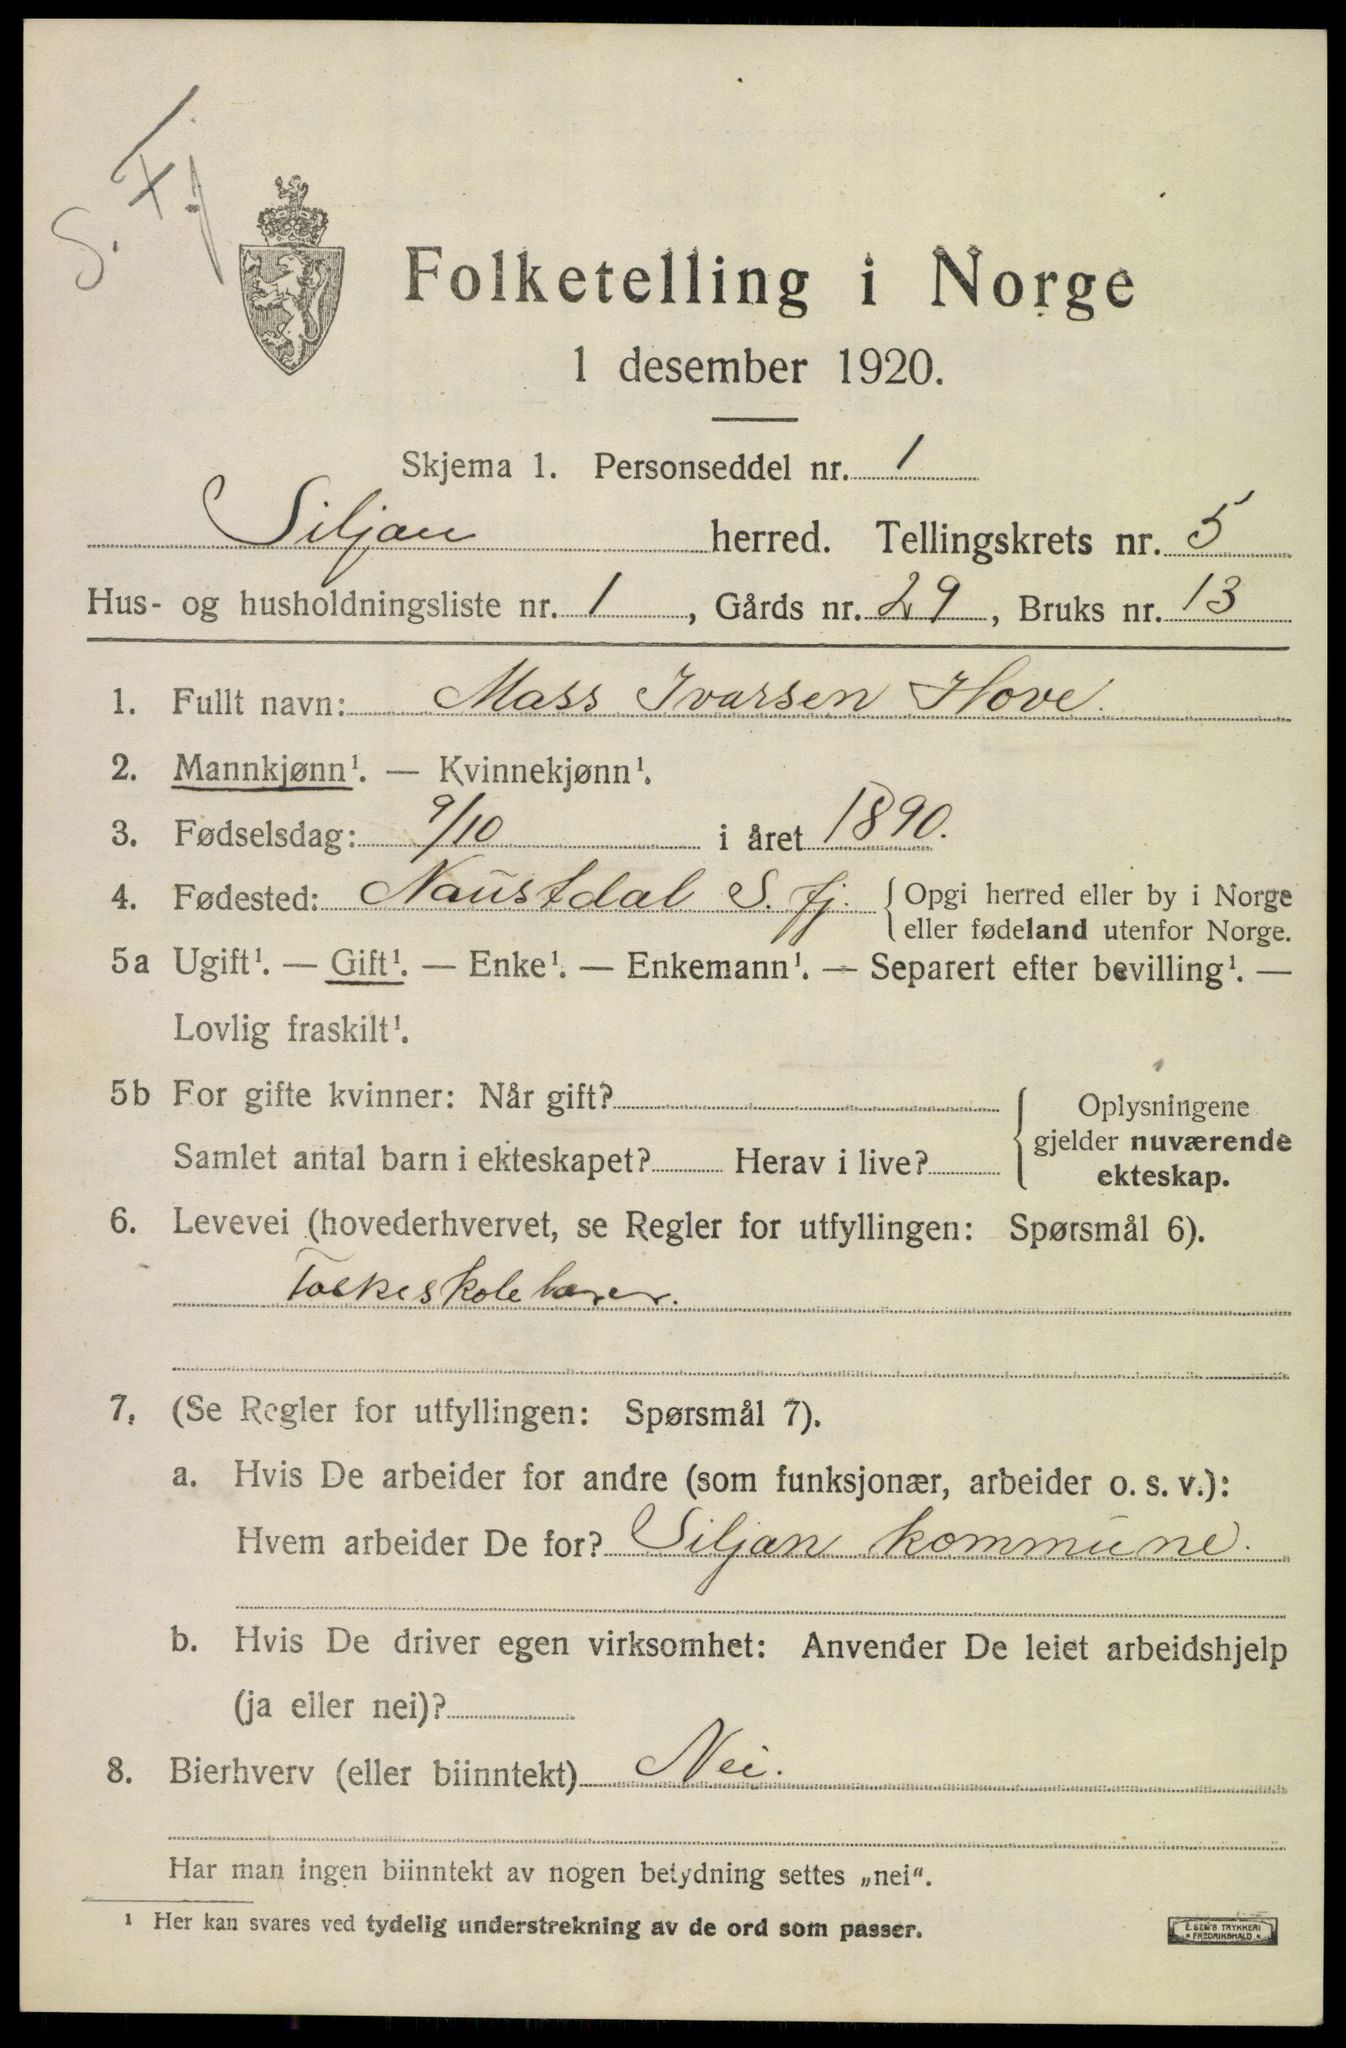 S. Fj
Folketelling i Norge
1 desember 1920.
Skjema 1. Personseddel nr. 1
Siljan herred. Tellingskrets nr. 5
Hus- og husholdningsliste nr. 1, Gårds nr. 29, Bruks nr. 13
1. Fullt navn: Mass Ivarsen Hove.
2. Mannkjønn¹. — Kvinnekjønn¹.
3. Fødselsdag: 9/10 i året 1890.
4. Fødested: Naustdal S. Fj. { Opgi herred eller by i Norge
eller fødeland utenfor Norge.
5a Ugift¹. — Gift¹. — Enke¹. — Enkemann¹. — Separert efter bevilling¹. —
Lovlig fraskilt¹.
5b For gifte kvinner: Når gift?
Samlet antal barn i ekteskapet? Herav i live?
Oplysningene
gjelder nuværende
ekteskap.
6. Levevei (hovederhvervet, se Regler for utfyllingen: Spørsmål 6).
Folkeskolelærer.
7. (Se Regler for utfyllingen: Spørsmål 7).
a. Hvis De arbeider for andre (som funksjonær, arbeider o. s. v.):
Hvem arbeider De for? Siljan kommune.
b. Hvis De driver egen virksomhet: Anvender De leiet arbeidshjelp
(ja eller nei)?
8. Bierhverv (eller biinntekt) Nei.
Har man ingen biinntekt av nogen betydning settes „nei".
¹ Her kan svares ved tydelig understrekning av de ord som passer.
E. SEM'S TRYKKERI
* FREDRIKSHALD *